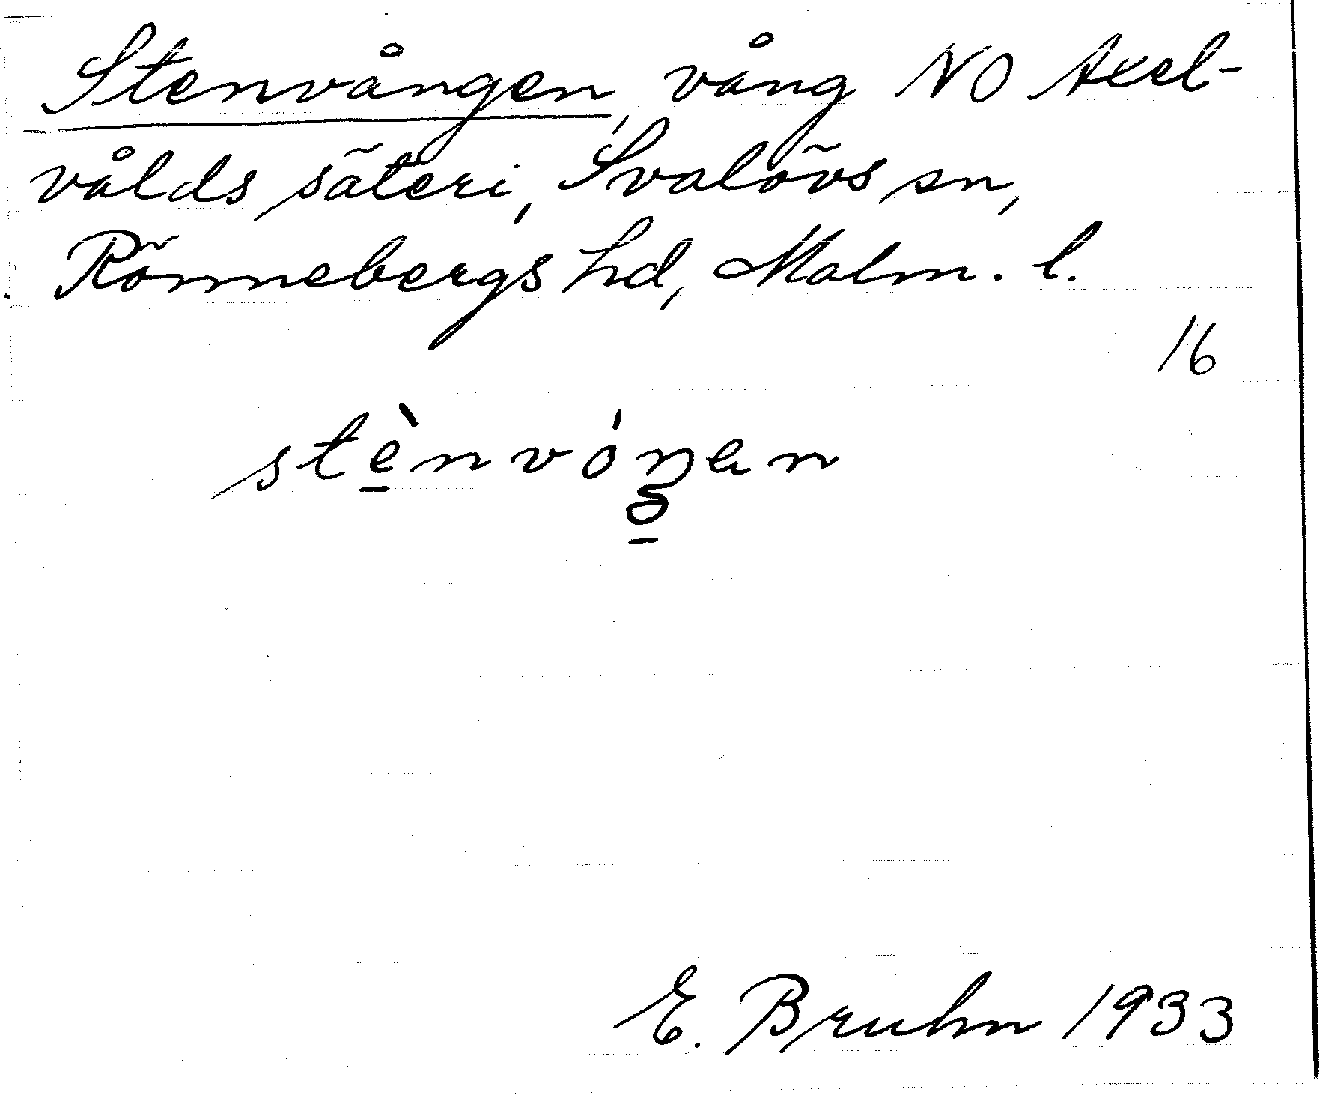 Stenvången, vång NO Axel-
vålds säteri, Svalövs sn,
Rönnebergs hd, Malm. l.
16
stè̱nvóŋen
E. Bruhn 1933